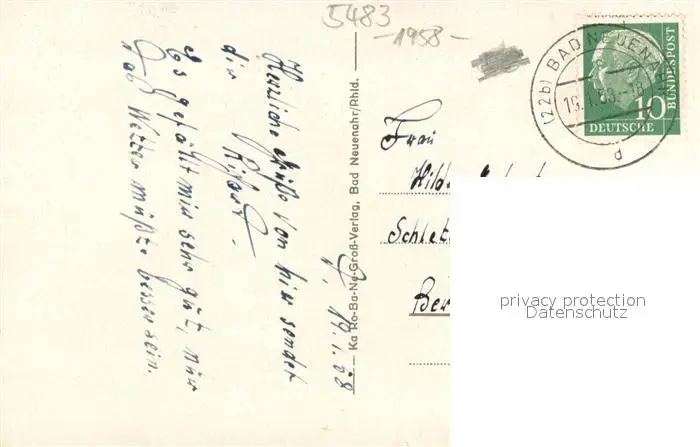 5483
-1958-
(22b) BAD NEUENAHR
19.1.58.-18
d
DEUTSCHE BUNDESPOST
10
Frau
Hilde
Schlet
Ber
privacy protection
Datenschutz
Ka Ro-Ba-Ne-Groß-Verlag, Bad Neuenahr/Rhld.
19.1.58
Herzliche Grüße von hier sendet
dir
Es gefällt mir sehr gut, nur
das Wetter müßte besser sein.